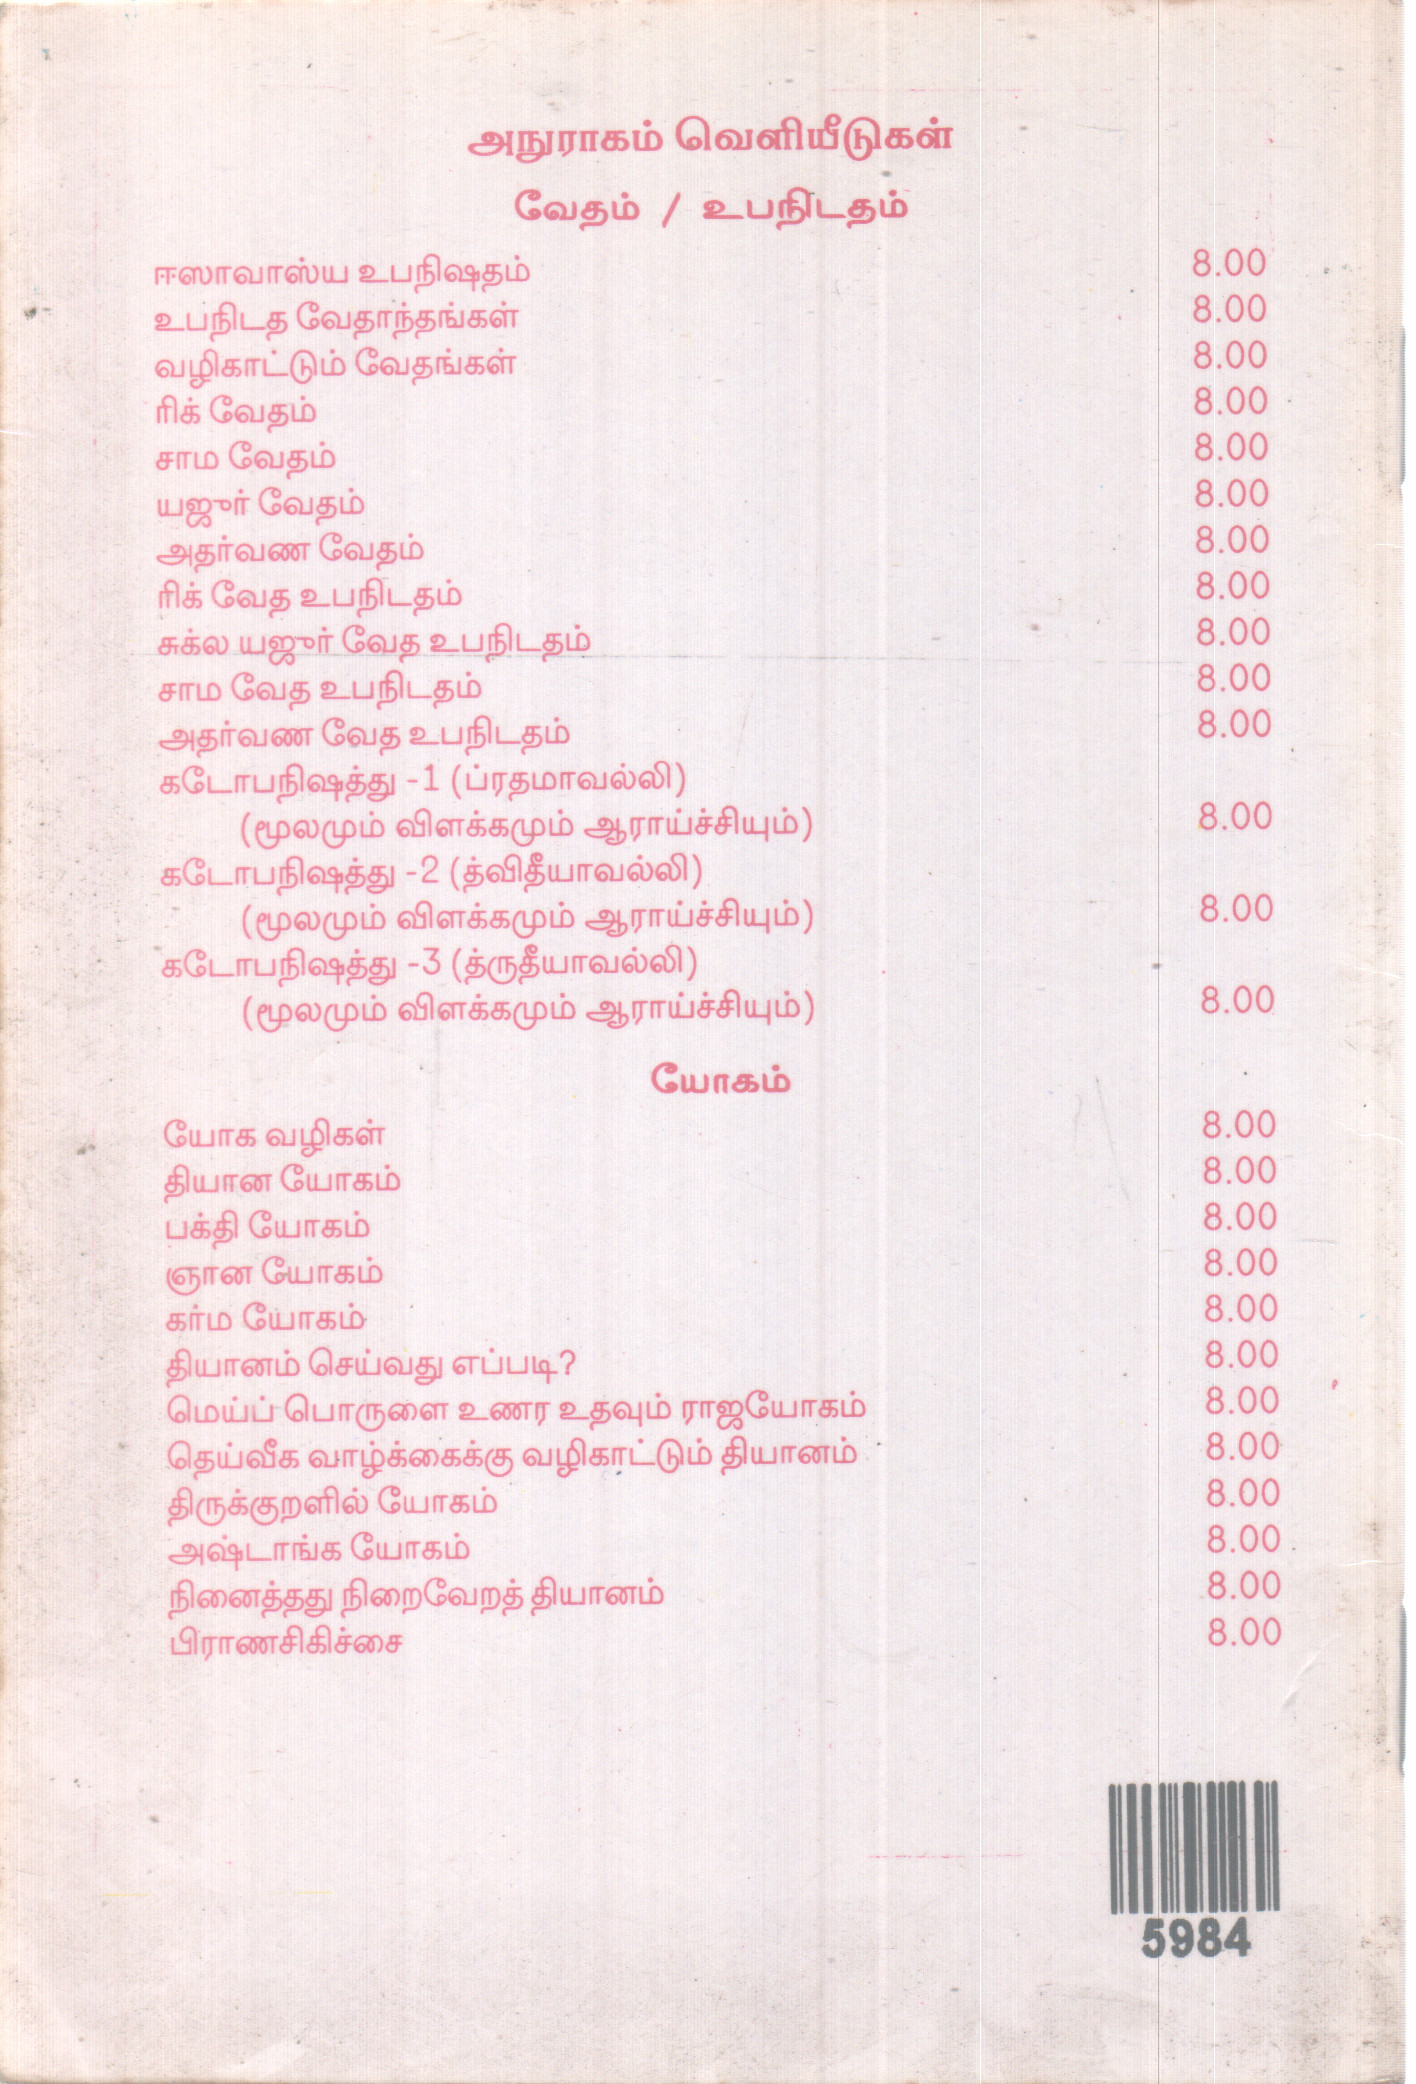 அநுராகம் வெளியீடுகள்
வேதம் / உபநிடதம்
ஈஸாவாஸ்ய உபநிஷதம் 8.00
உபநிடத வேதாந்தங்கள் 8.00
வழிகாட்டும் வேதங்கள் 8.00
ரிக் வேதம் 8.00
சாம வேதம் 8.00
யஜுர் வேதம் 8.00
அதர்வண வேதம் 8.00
ரிக் வேத உபநிடதம் 8.00
சுக்ல யஜுர் வேத உபநிடதம் 8.00
சாம வேத உபநிடதம் 8.00
அதர்வண வேத உபநிடதம் 8.00
கடோபநிஷத்து -1 (ப்ரதமாவல்லி)
(மூலமும் விளக்கமும் ஆராய்ச்சியும்) 8.00
கடோபநிஷத்து -2 (த்விதீயாவல்லி)
(மூலமும் விளக்கமும் ஆராய்ச்சியும்) 8.00
கடோபநிஷத்து -3 (த்ருதீயாவல்லி)
(மூலமும் விளக்கமும் ஆராய்ச்சியும்) 8.00
யோகம்
யோக வழிகள் 8.00
தியான யோகம் 8.00
பக்தி யோகம் 8.00
ஞான யோகம் 8.00
கர்ம யோகம் 8.00
தியானம் செய்வது எப்படி? 8.00
மெய்ப் பொருளை உணர உதவும் ராஜயோகம் 8.00
தெய்வீக வாழ்க்கைக்கு வழிகாட்டும் தியானம் 8.00
திருக்குறளில் யோகம் 8.00
அஷ்டாங்க யோகம் 8.00
நினைத்தது நிறைவேறத் தியானம் 8.00
பிராணசிகிச்சை 8.00
5984